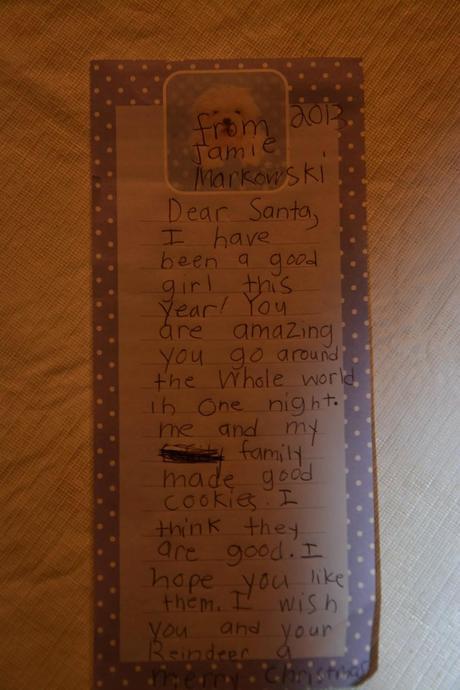 from 2013
Jamie
Markowski
Dear Santa,
I have
been a good
girl this
year! You
are amazing
you go around
the Whole world
in One night.
me and my
family
made good
cookies. I
think they
are good. I
hope you like
them. I wish
you and your
Reindeer a
merry Christmas